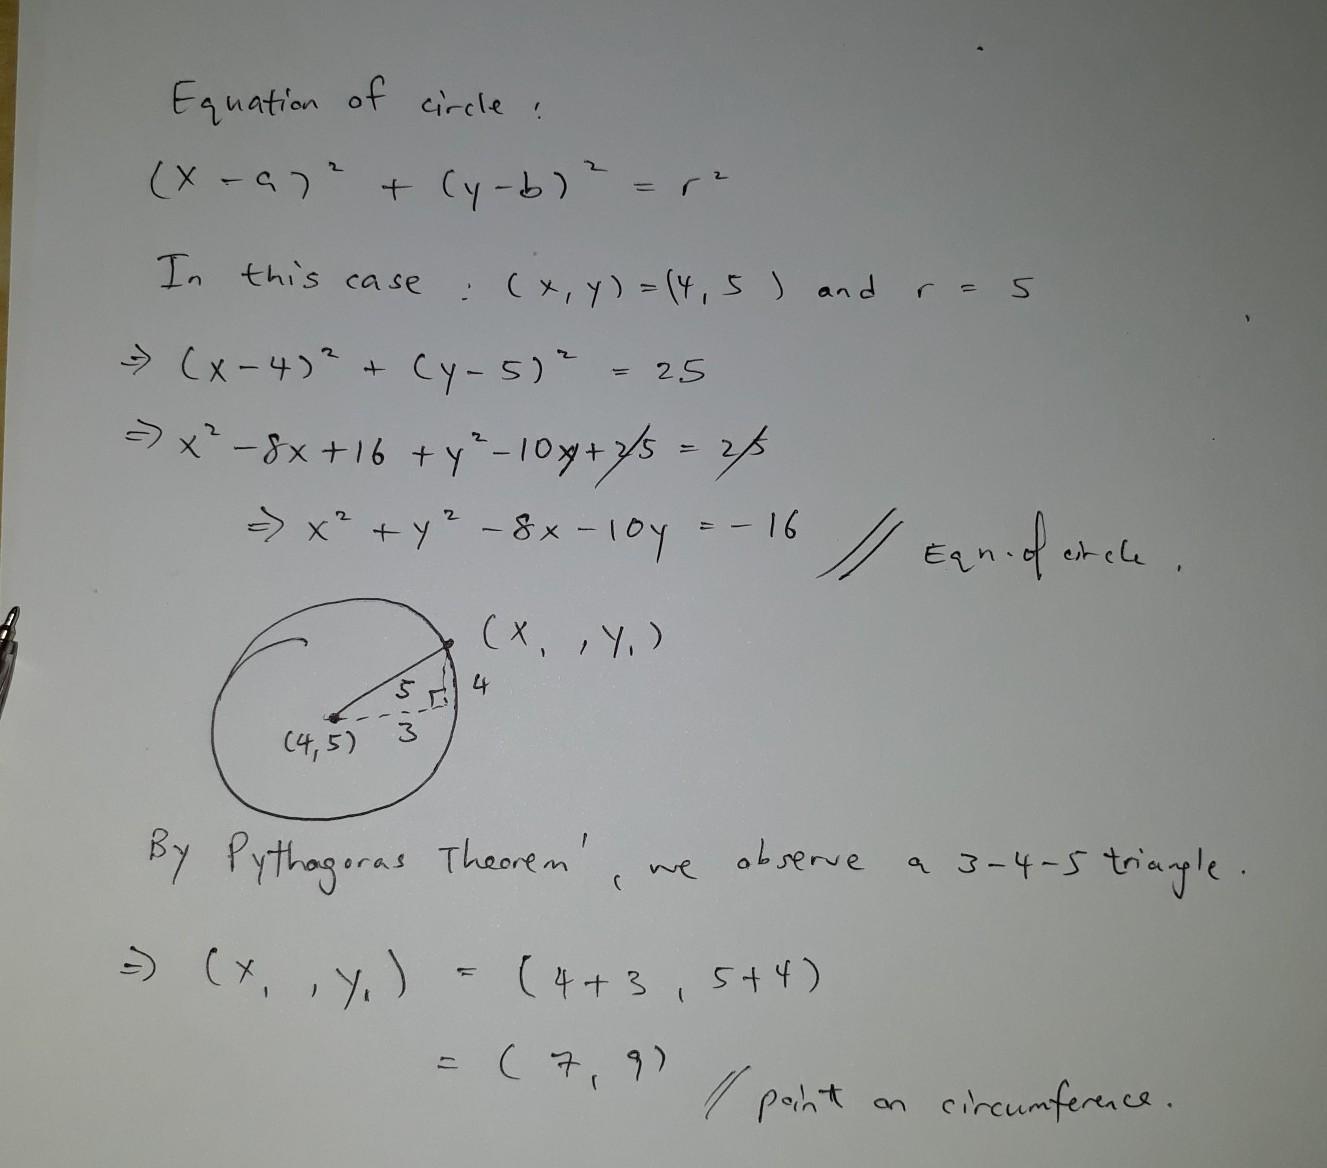 Equation of circle :
(x-a)² + (y-b)² = r²
In this case : (x, y) = (4, 5) and r = 5
⇒ (x-4)² + (y-5)² = 25
⇒ x² - 8x + 16 + y² - 10y + 25 = 25
⇒ x² + y² - 8x - 10y = -16 // Eqn. of circle.
(x₁, y₁)
5 4
(4,5) 3
By Pythagoras Theorem', we observe a 3-4-5 triangle.
⇒ (x₁, y₁) = (4+3, 5+4)
= (7, 9) // point on circumference.